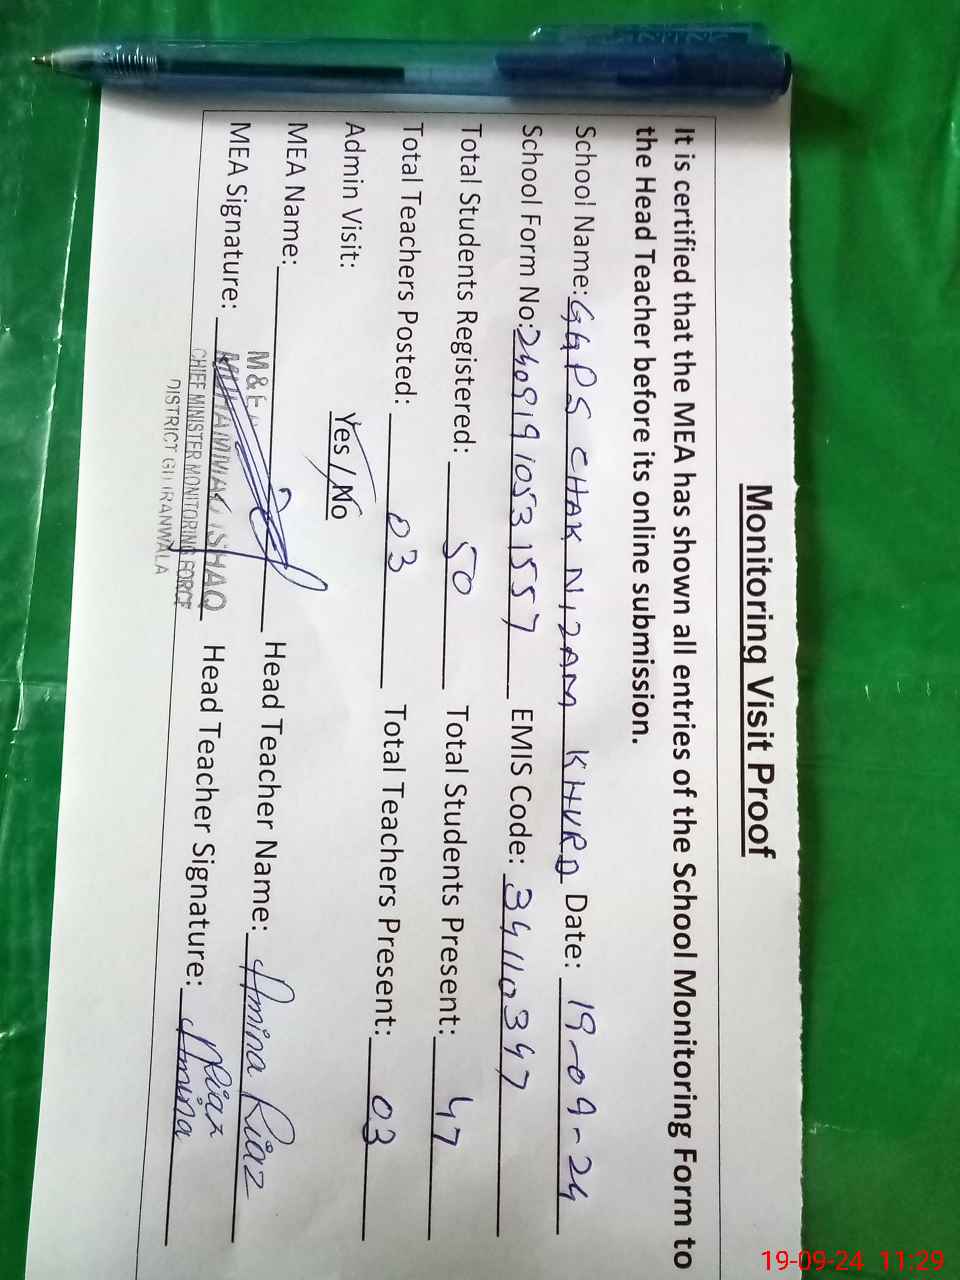 Monitoring Visit Proof
It is certified that the MEA has shown all entries of the School Monitoring Form to
the Head Teacher before its online submission.
School Name: GGPS CHAK NIZAM KHURD Date: 19-09-24
School Form No: 24091910531557 EMIS Code: 34110347
Total Students Registered: 50 Total Students Present: 47
Total Teachers Posted: 03 Total Teachers Present: 03
Admin Visit: Yes / No
MEA Name: Head Teacher Name: Amina Riaz
M & E
MEA Signature: MUHAMMAD ISHAQ Head Teacher Signature: Amina Riaz
CHIEF MINISTER MONITORING FORCE
DISTRICT GUJRANWALA
19-09-24 11:29